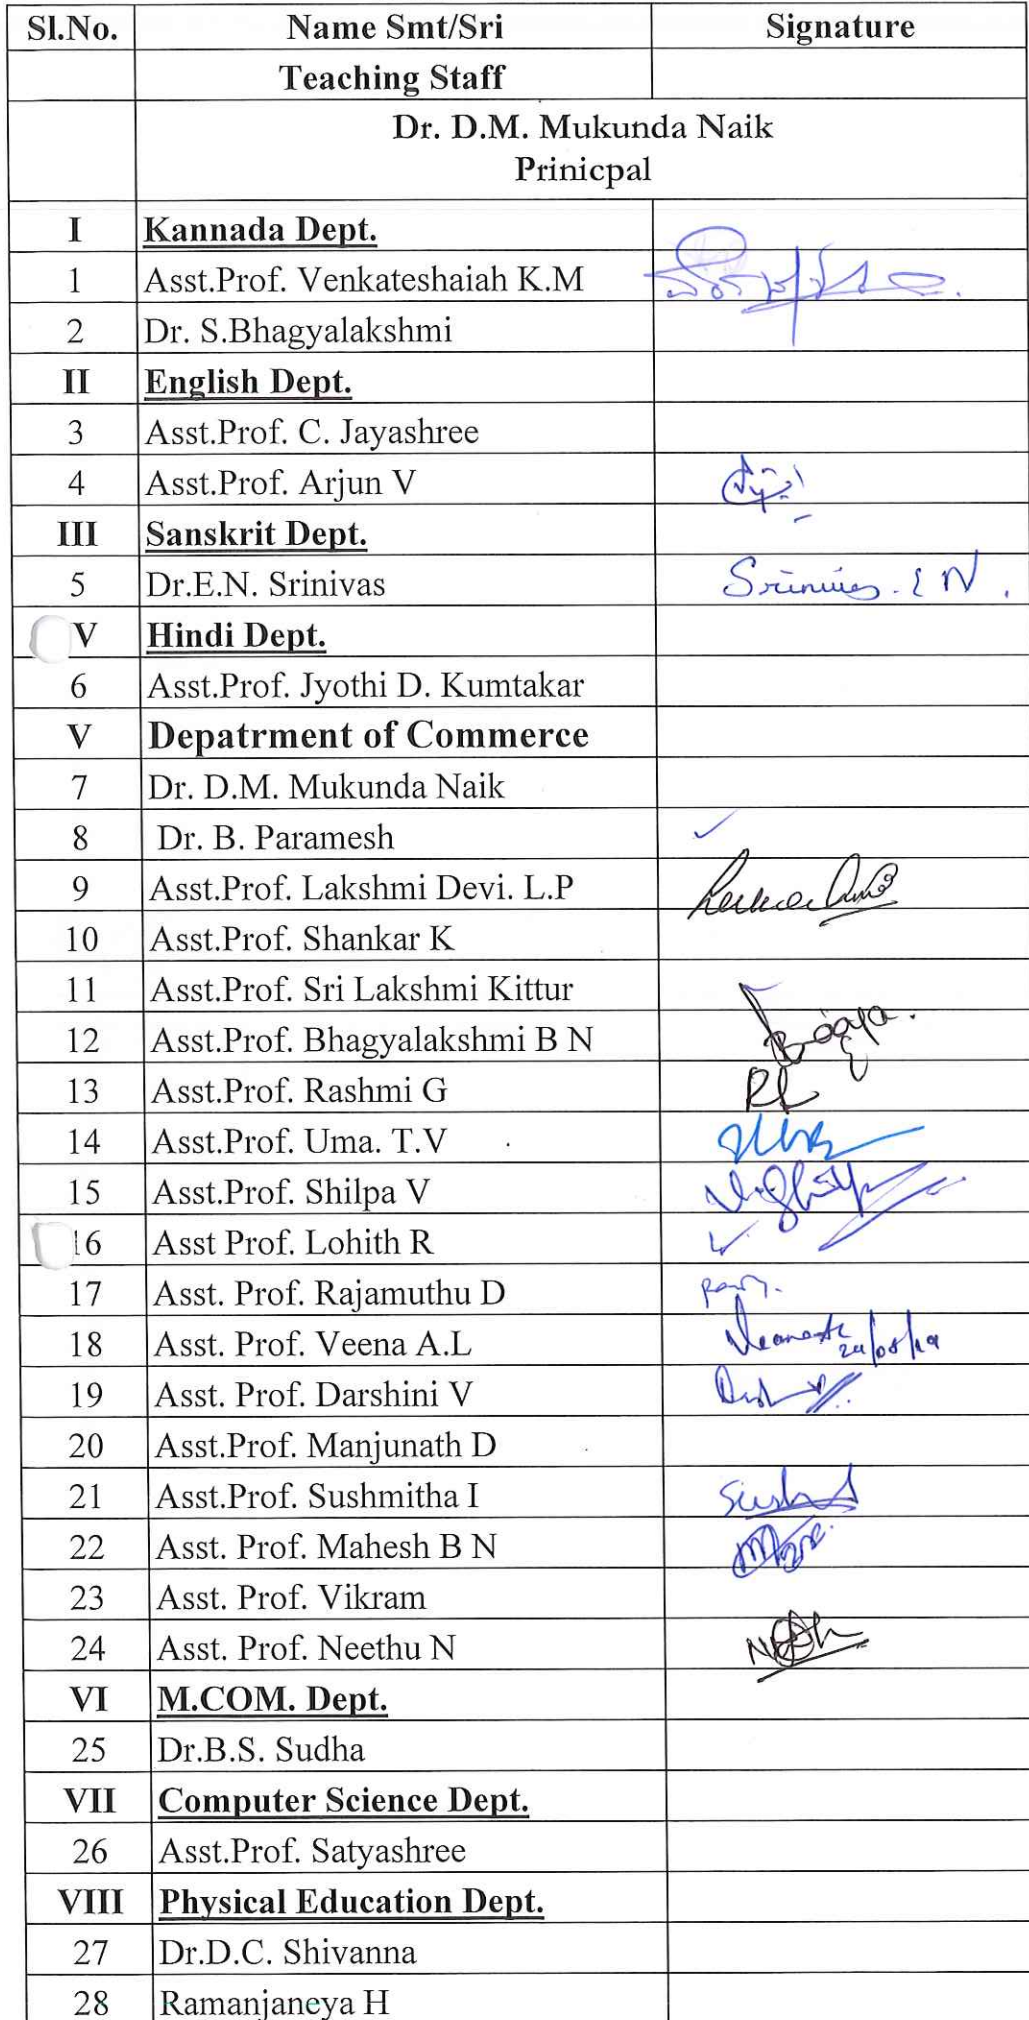 Sl.No. Name Smt/Sri Signature
Teaching Staff
Dr. D.M. Mukunda Naik
Prinicpal
I Kannada Dept.
1 Asst.Prof. Venkateshaiah K.M
2 Dr. S.Bhagyalakshmi
II English Dept.
3 Asst.Prof. C. Jayashree
4 Asst.Prof. Arjun V
III Sanskrit Dept.
5 Dr.E.N. Srinivas Srinivas. E N.
V Hindi Dept.
6 Asst.Prof. Jyothi D. Kumtakar
V Depatrment of Commerce
7 Dr. D.M. Mukunda Naik
8 Dr. B. Paramesh
9 Asst.Prof. Lakshmi Devi. L.P
10 Asst.Prof. Shankar K
11 Asst.Prof. Sri Lakshmi Kittur
12 Asst.Prof. Bhagyalakshmi B N
13 Asst.Prof. Rashmi G
14 Asst.Prof. Uma. T.V
15 Asst.Prof. Shilpa V
16 Asst Prof. Lohith R
17 Asst. Prof. Rajamuthu D
18 Asst. Prof. Veena A.L
19 Asst. Prof. Darshini V
20 Asst.Prof. Manjunath D
21 Asst.Prof. Sushmitha I
22 Asst. Prof. Mahesh B N
23 Asst. Prof. Vikram
24 Asst. Prof. Neethu N
VI M.COM. Dept.
25 Dr.B.S. Sudha
VII Computer Science Dept.
26 Asst.Prof. Satyashree
VIII Physical Education Dept.
27 Dr.D.C. Shivanna
28 Ramanjaneya H